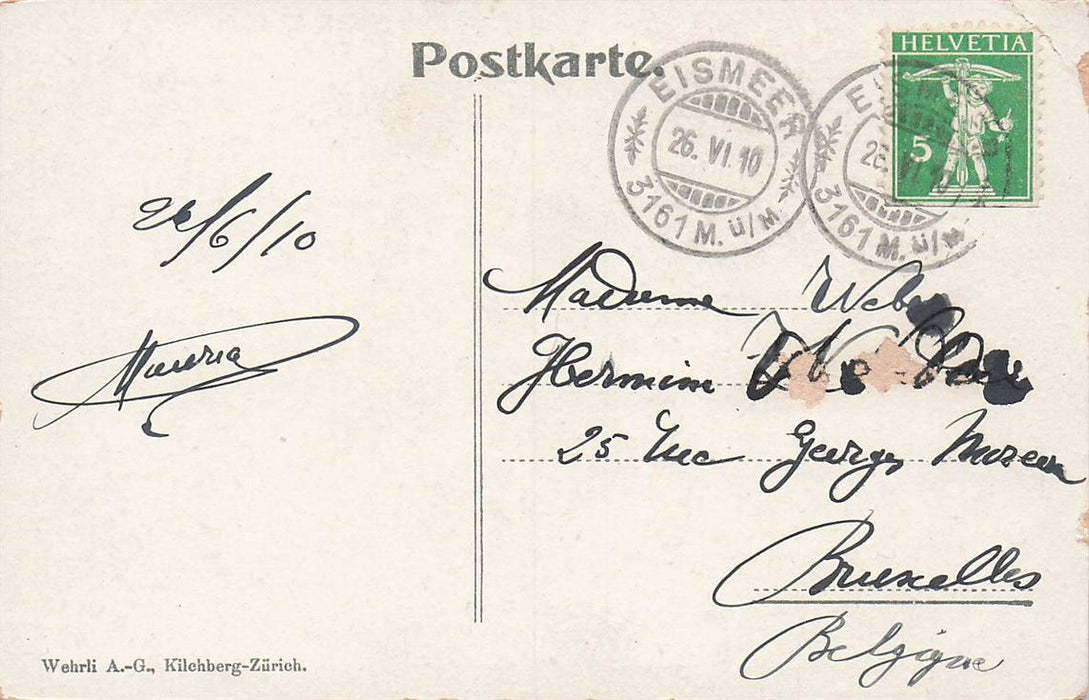 Postkarte.
HELVETIA
5
EISMEER
26. VI. 10
3161 M. ü/M
26. VI. 10
3161 M. ü/M
26/6/10
Madame Weber
Hermine
25 Rue Georges Moreau
Bruxelles
Belgique
Wehrli A.-G., Kilchberg-Zürich.